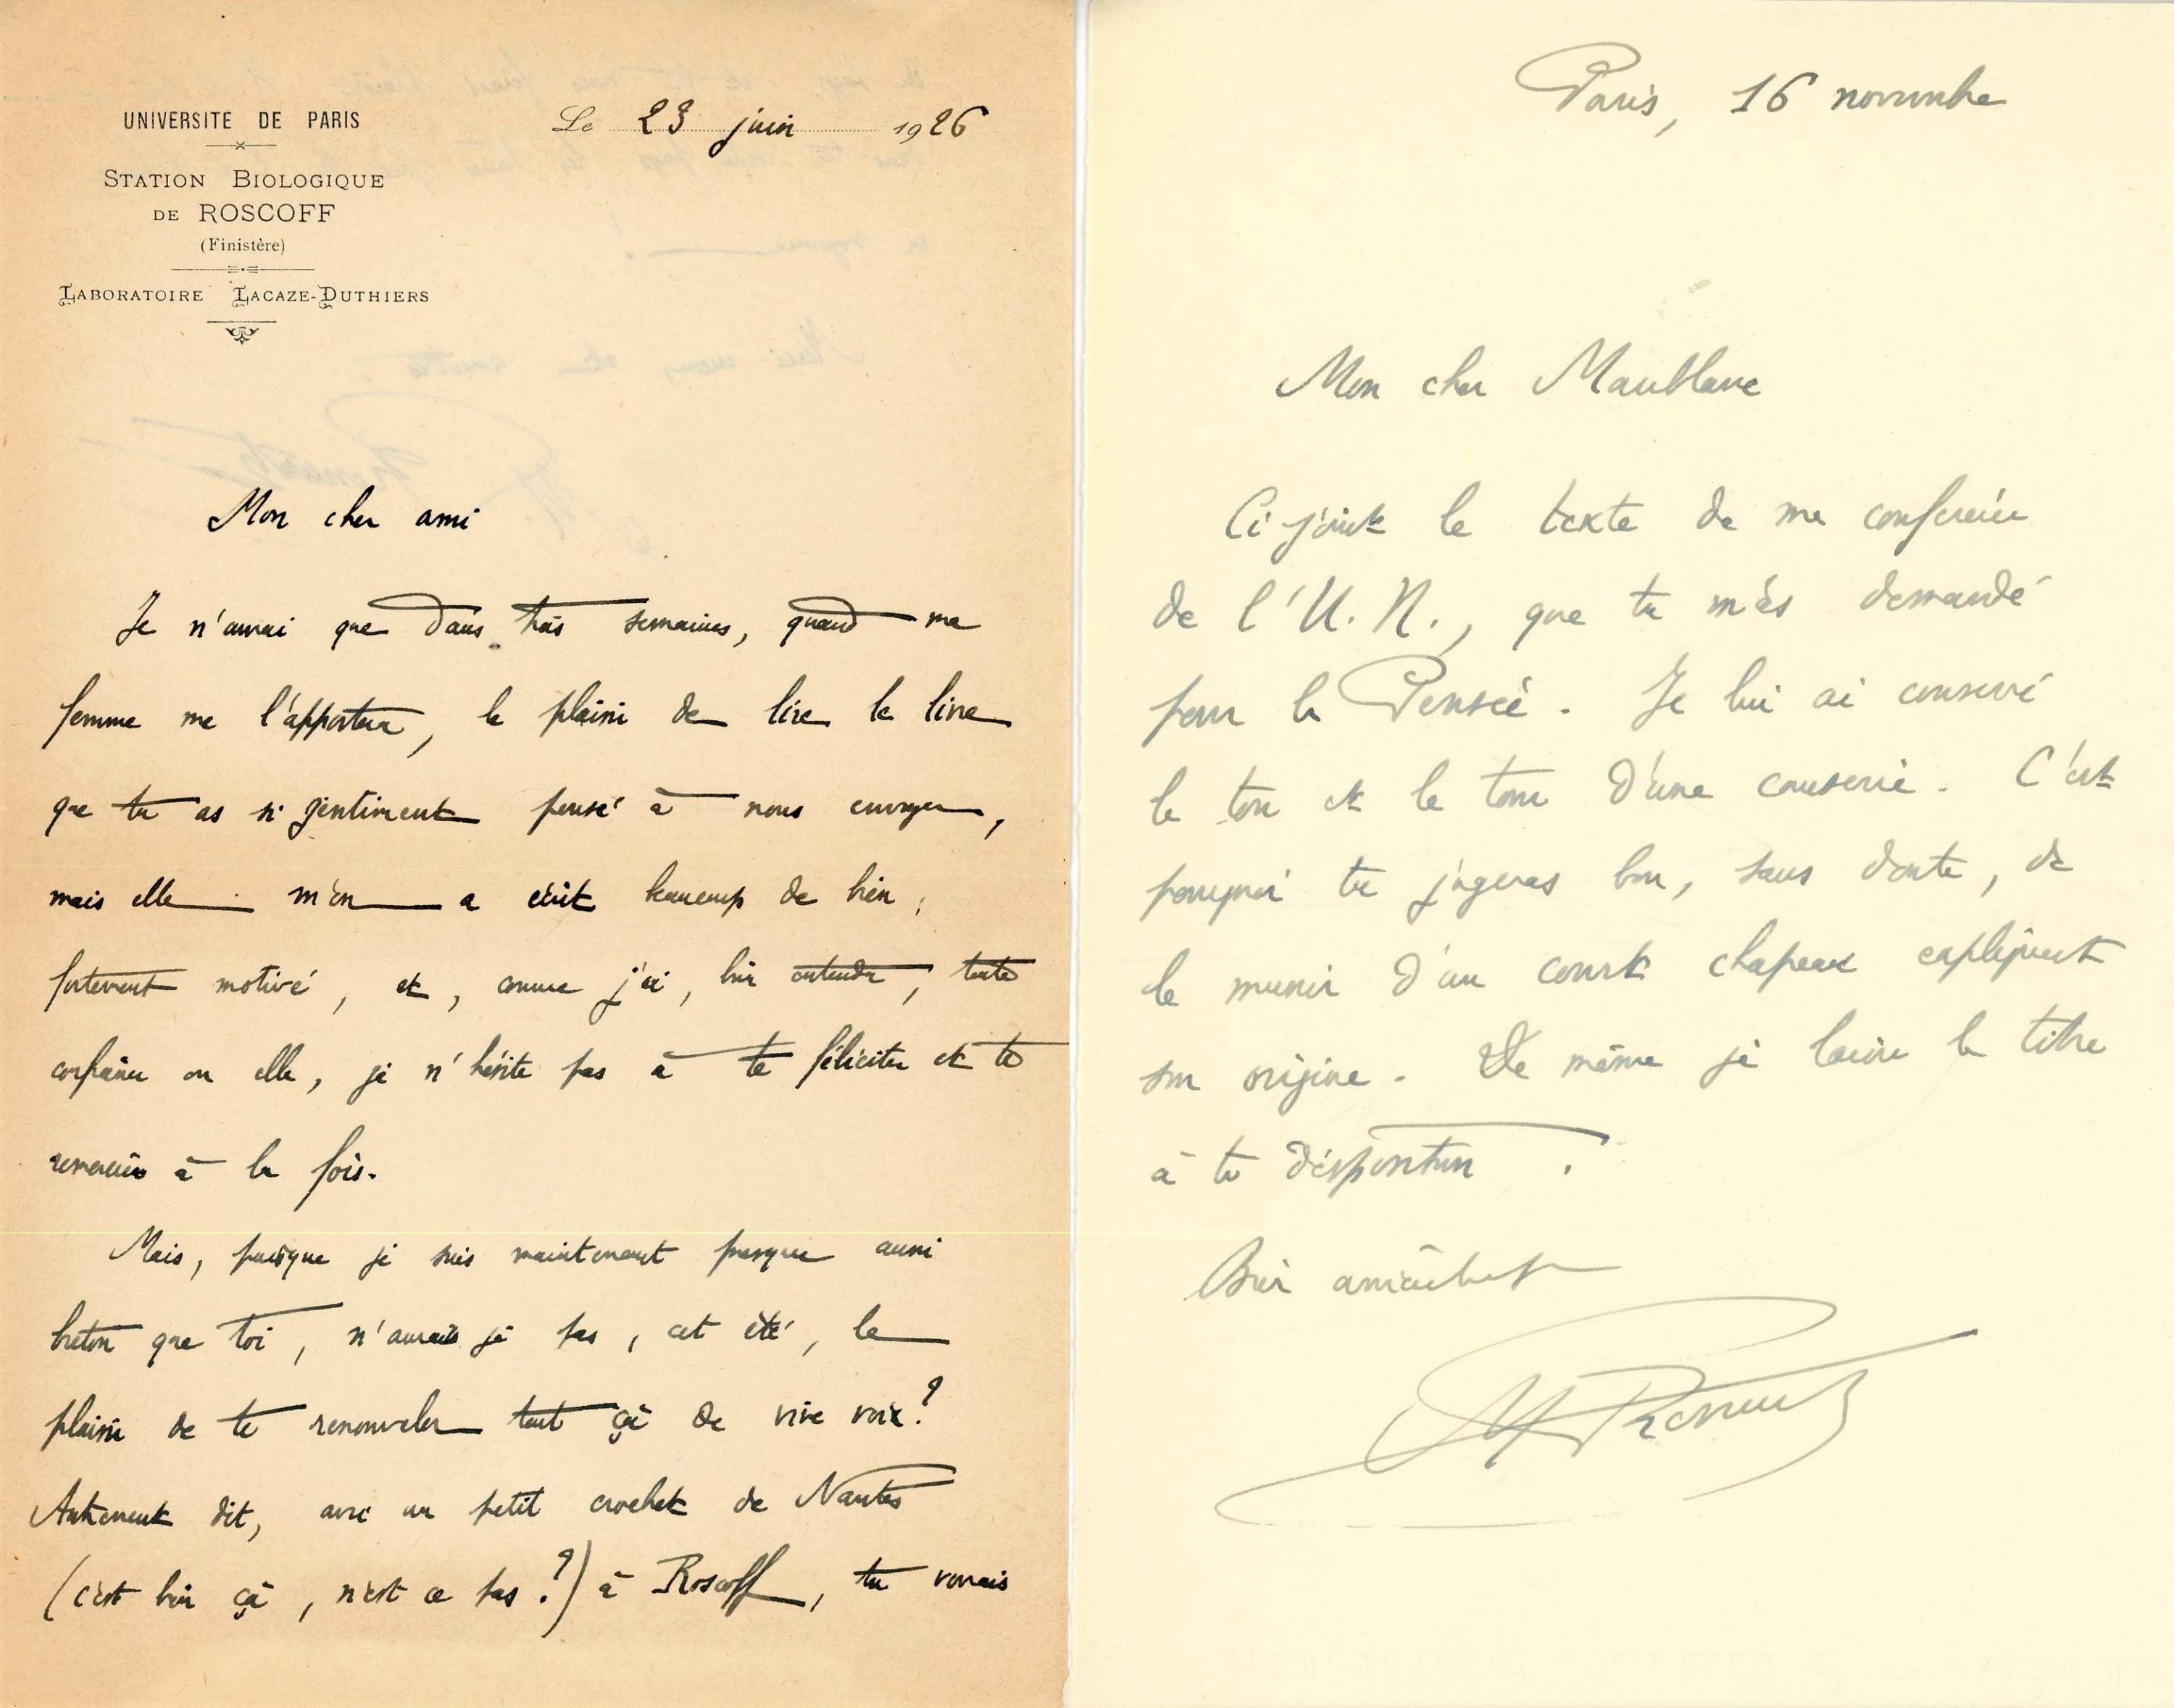 UNIVERSITE DE PARIS
STATION BIOLOGIQUE
DE ROSCOFF
(Finistère)
LABORATOIRE LACAZE-DUTHIERS
Le 23 juin 1926
Mon cher ami
Je n'aurai que dans trois semaines, quand ma
femme me l'apportera, le plaisir de lire le livre
que tu as si gentiment pensé à nous envoyer,
mais elle m'en a écrit beaucoup de bien,
fortement motivé, et, comme j'ai, bien entendu, toute
confiance en elle, je n'hésite pas à te féliciter et te
remercier à la fois.
Mais, puisque je suis maintenant presque aussi
breton que toi, n'aurais je pas, cet été, le
plaisir de te renouveler tout ça de vive voix?
Autrement dit, avec un petit crochet de Nantes
(c'est bien ça, n'est ce pas?) à Roscoff, tu verrais
Paris, 16 novembre
Mon cher Maublanc
Ci joint le texte de ma conférence
de l'U.N., que tu m'as demandé
pour la Pensée. Je lui ai conservé
le ton et le tour d'une causerie. C'est
pourquoi tu jugeras bon, sans doute, de
le munir d'un court chapeau expliquant
son origine. De même je laisse le titre
à ta disposition.
Bien amicalement
M Prenant